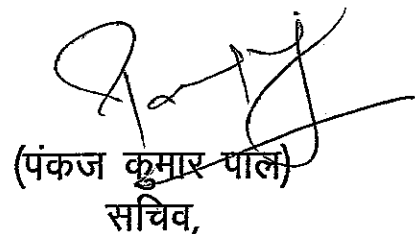 (पंकज कुमार पाल)
सचिव,